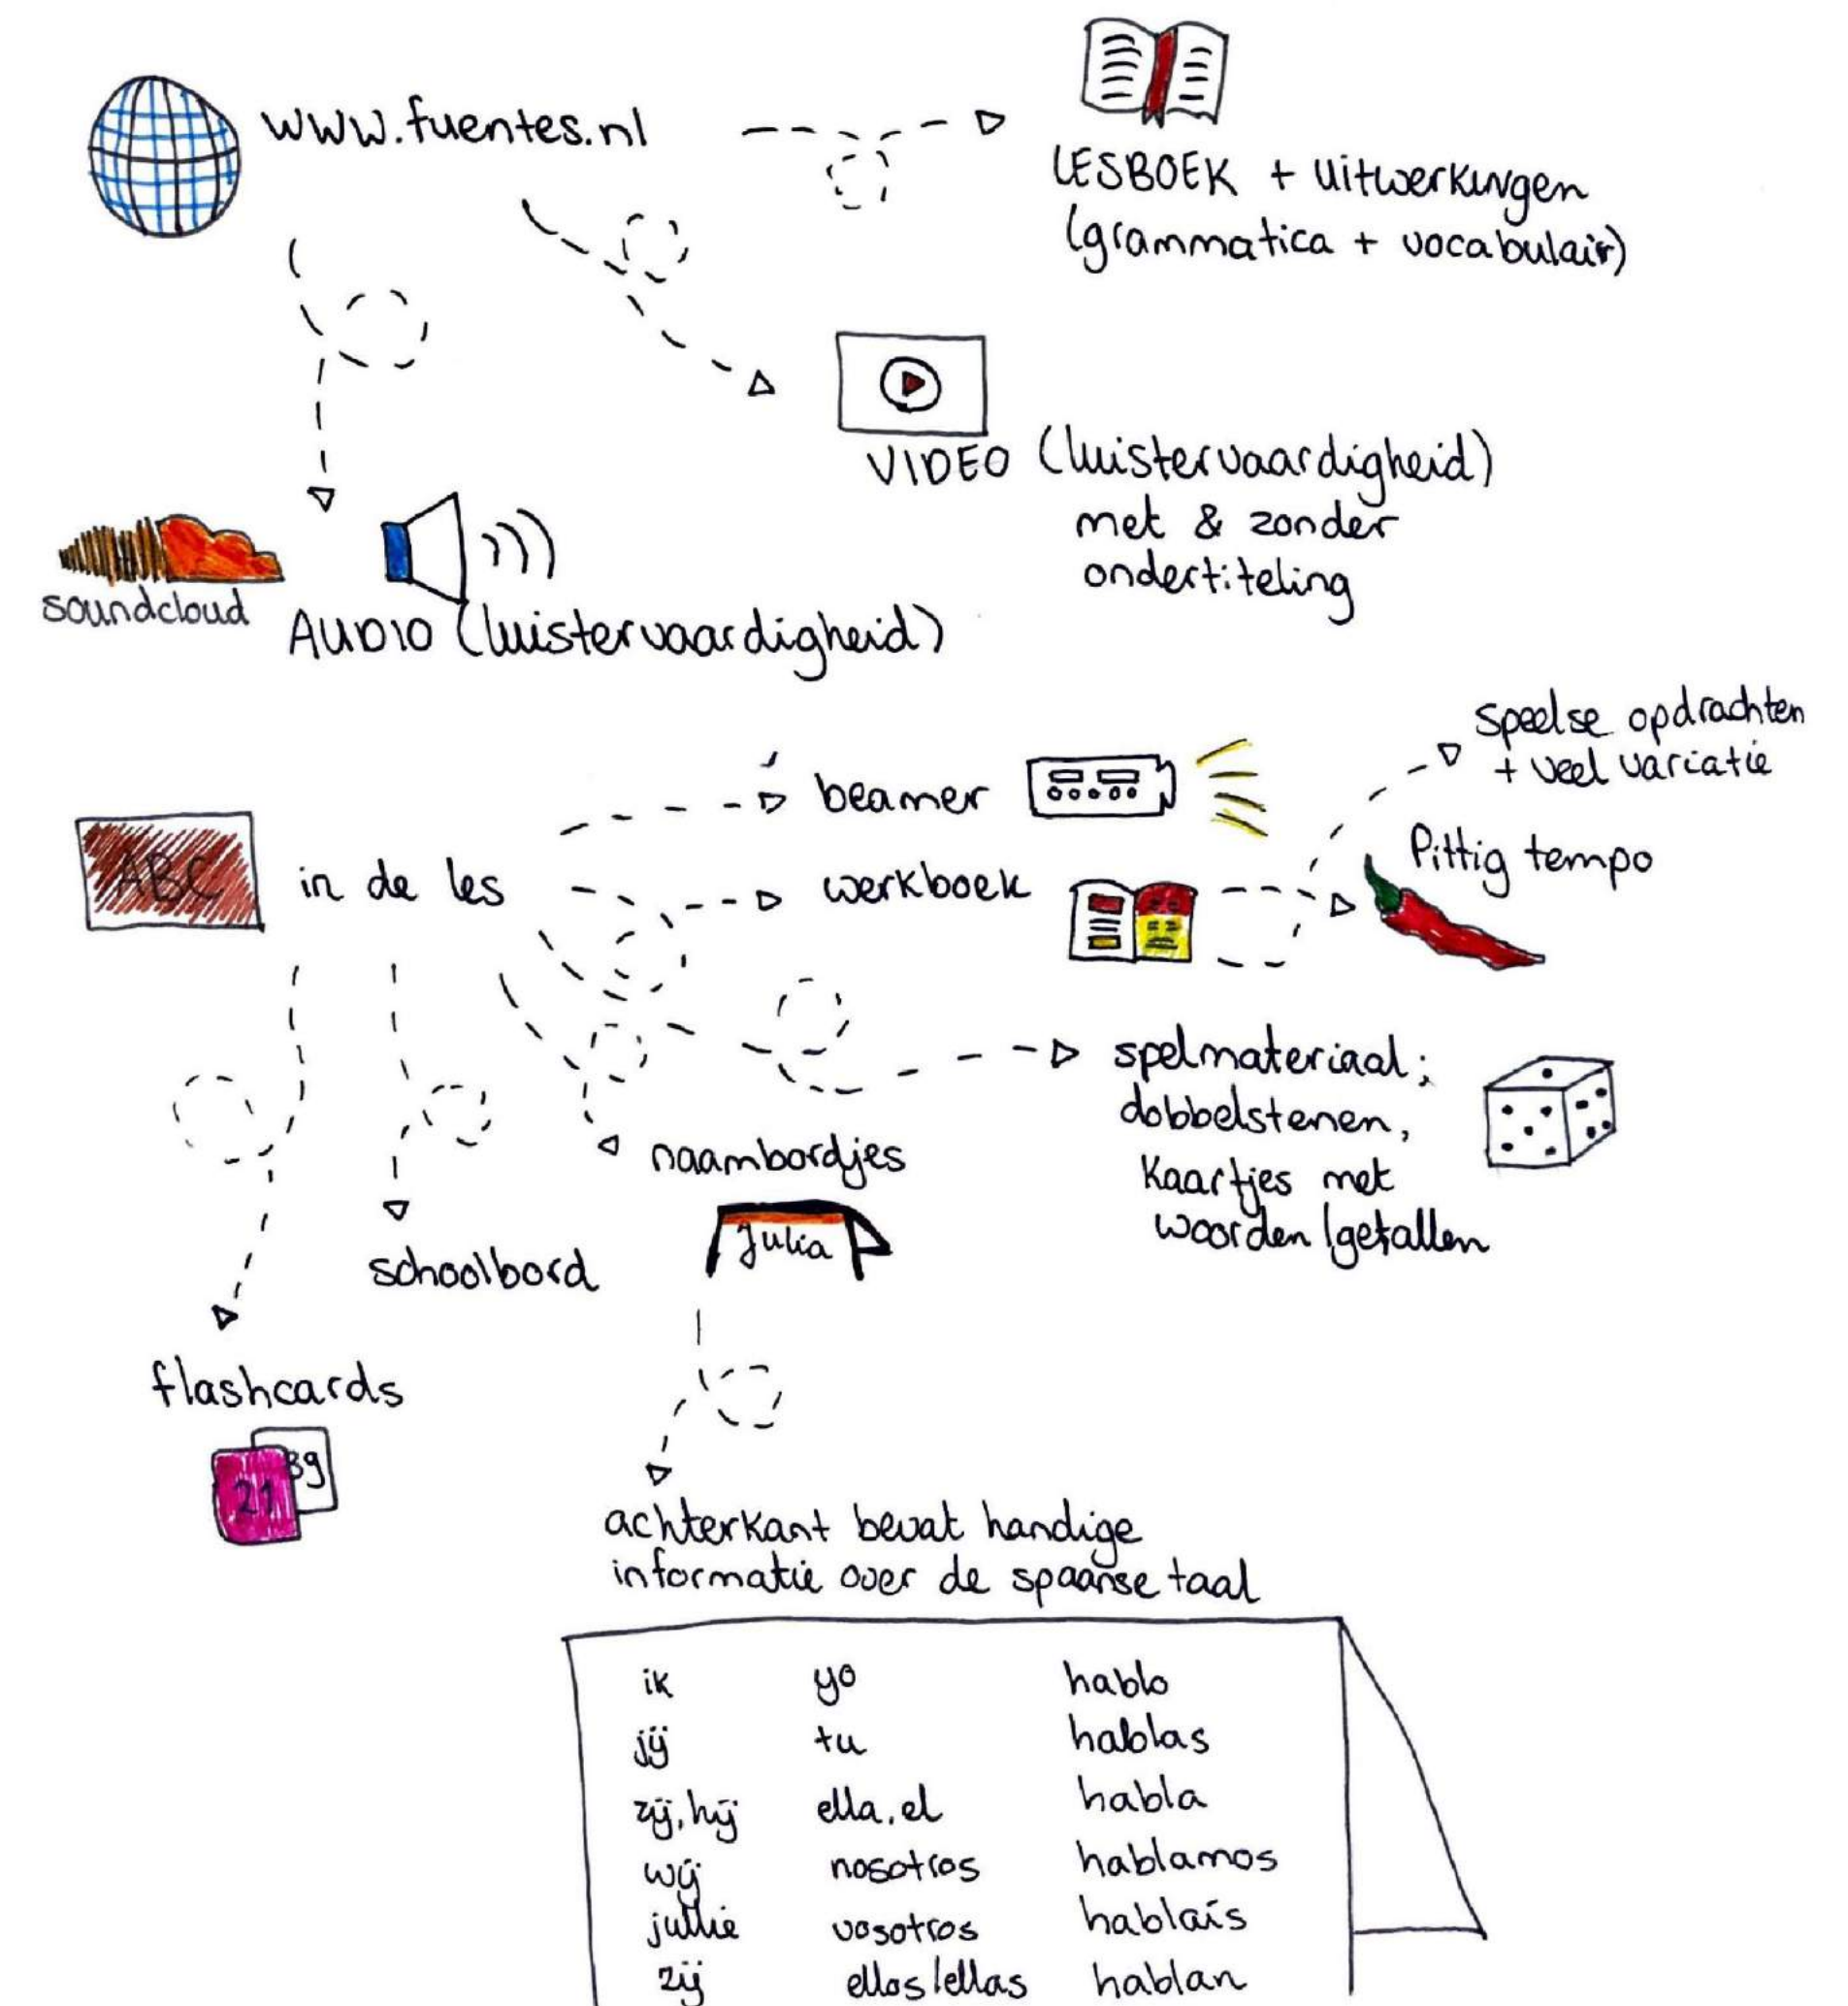 www.fuentes.nl
LESBOEK + uitwerkingen
(grammatica + vocabulair)
VIDEO (luistervaardigheid)
met & zonder
ondertiteling
soundcloud
AUDIO (luistervaardigheid)
speelse opdrachten
+ veel variatie
beamer
Pittig tempo
ABC
in de les
werkboek
spelmateriaal;
dobbelstenen,
kaartjes met
woorden/getallen
naambordjes
Julia
schoolbord
flashcards
39
21
achterkant bevat handige
informatie over de spaanse taal
ik yo hablo
jij tu hablas
zij, hij ella, el habla
wij nosotros hablamos
jullie vosotros hablaís
zij ellos/ellas hablan